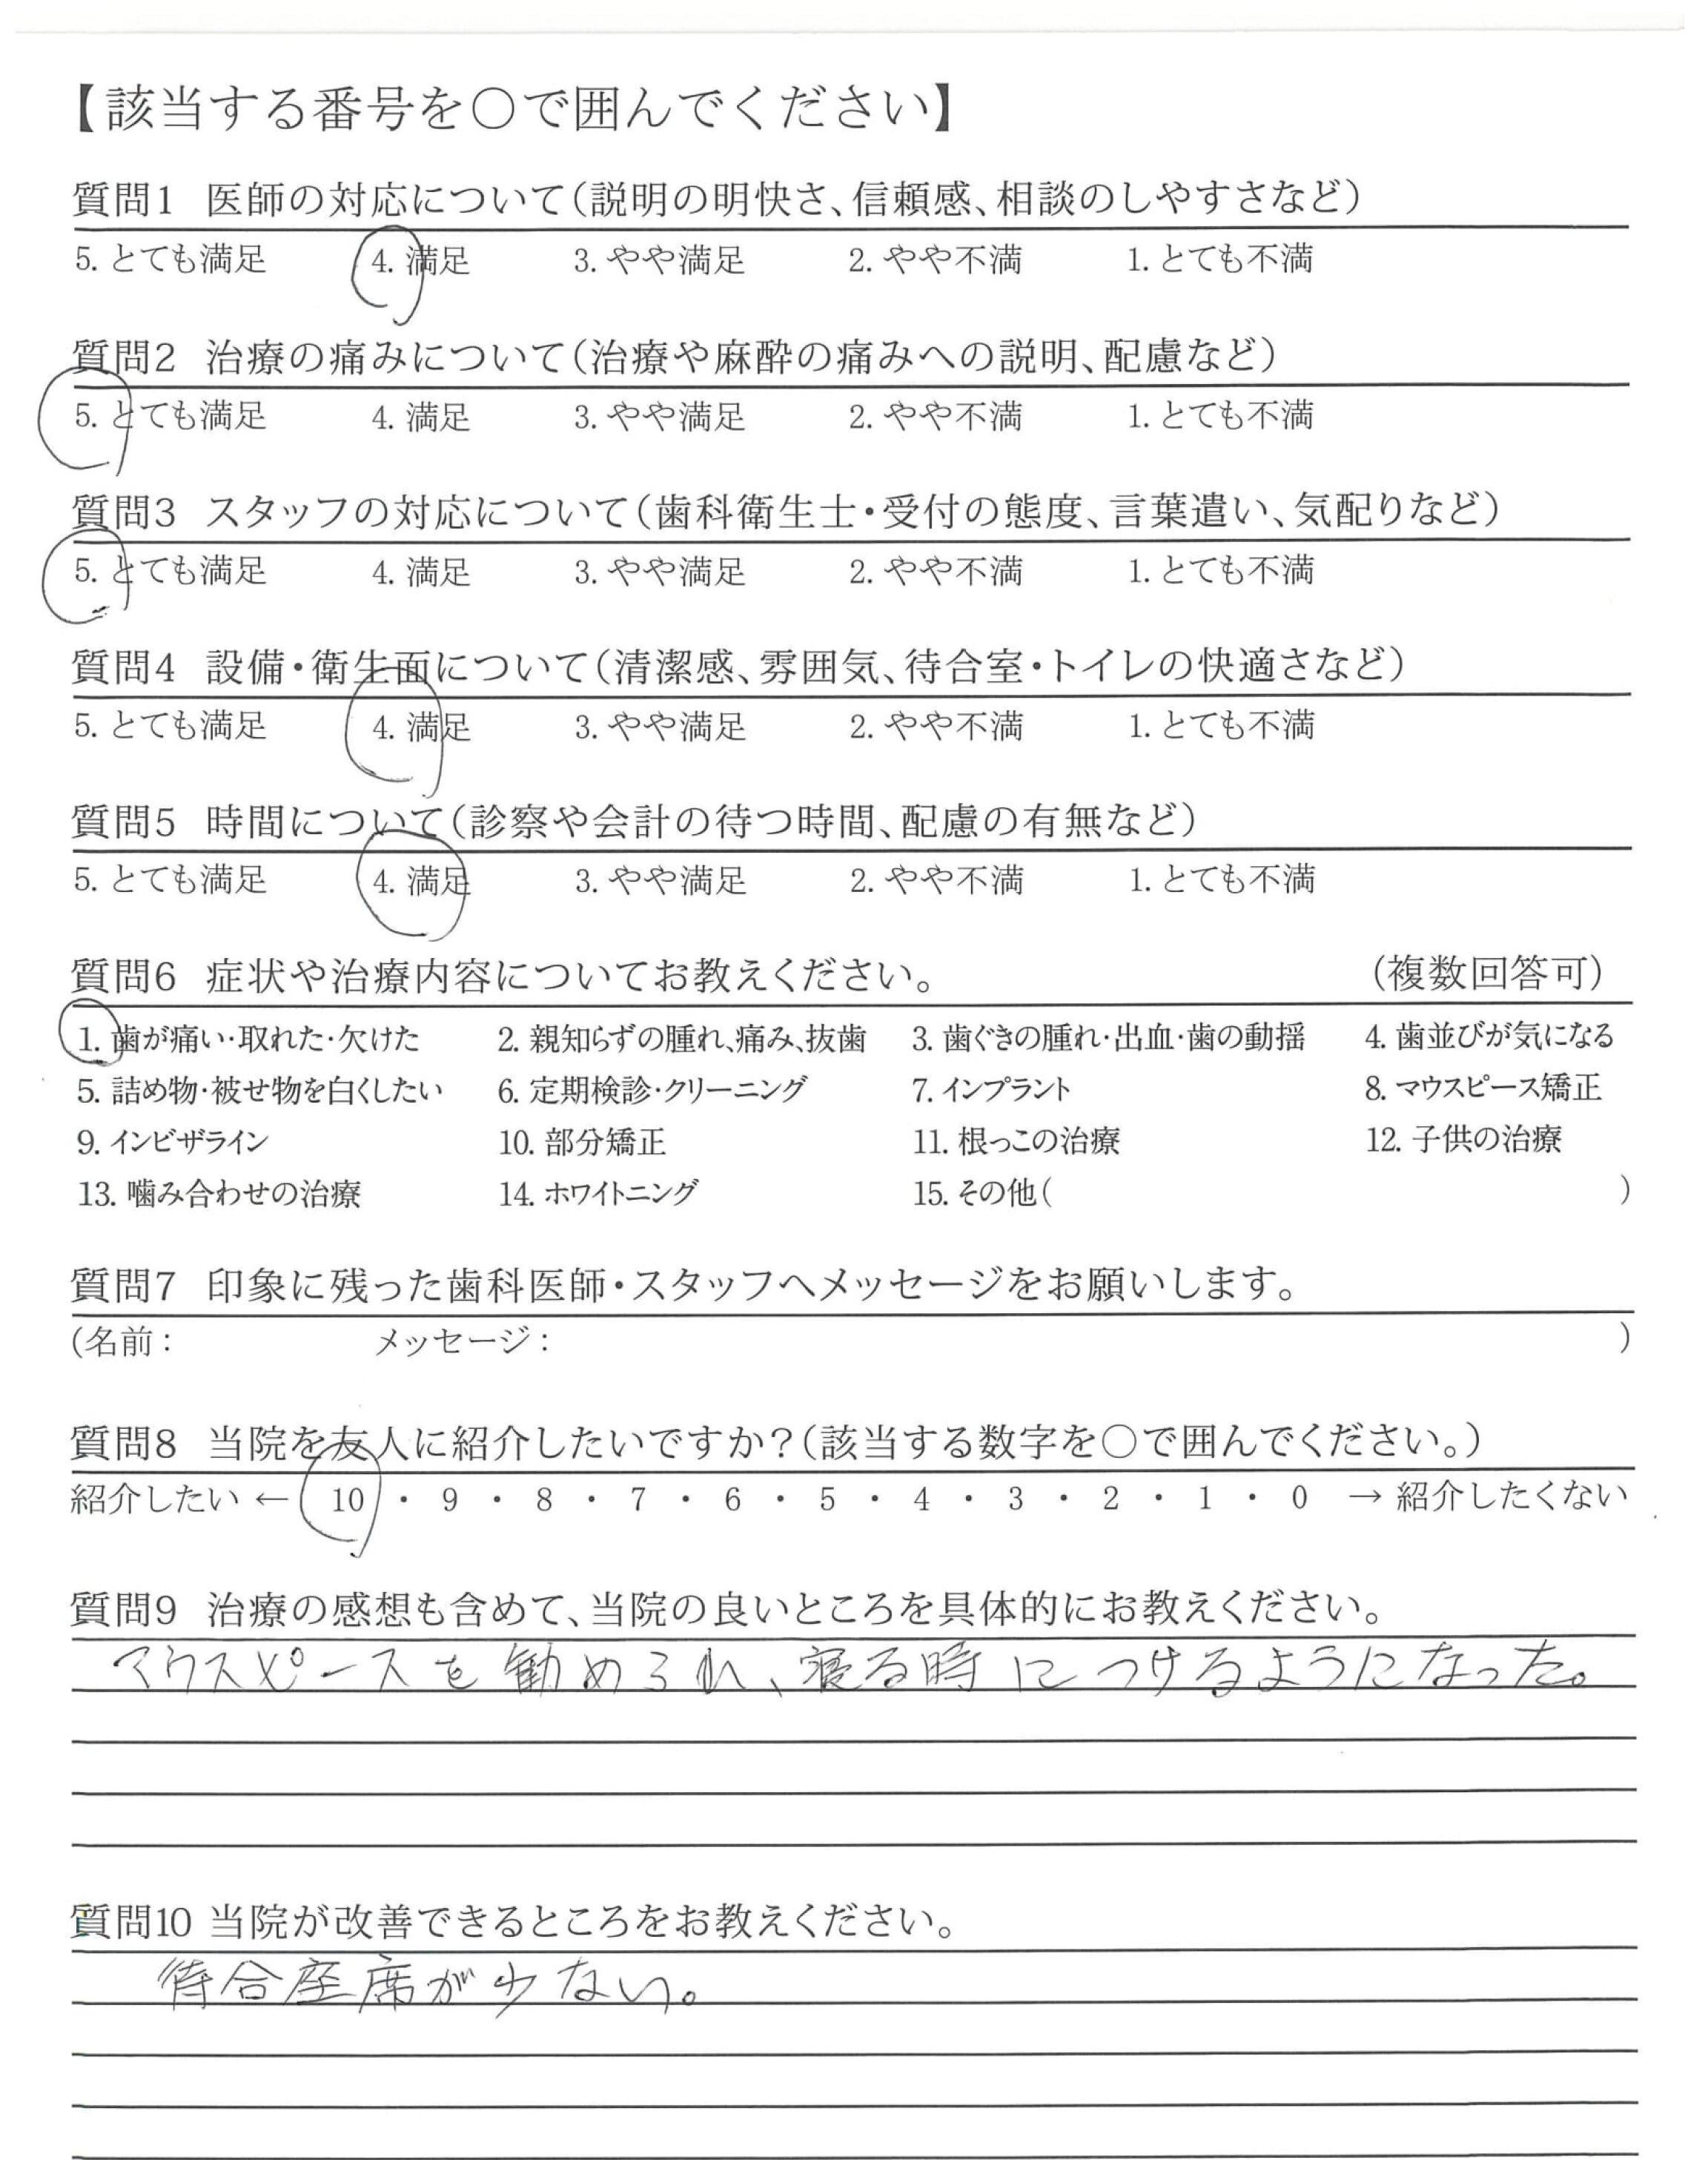 【該当する番号を○で囲んでください】
質問1 医師の対応について(説明の明快さ、信頼感、相談のしやすさなど)
5. とても満足 4. 満足 3. やや満足 2. やや不満 1. とても不満
質問2 治療の痛みについて(治療や麻酔の痛みへの説明、配慮など)
5. とても満足 4. 満足 3. やや満足 2. やや不満 1. とても不満
質問3 スタッフの対応について(歯科衛生士・受付の態度、言葉遣い、気配りなど)
5. とても満足 4. 満足 3. やや満足 2. やや不満 1. とても不満
質問4 設備・衛生面について(清潔感、雰囲気、待合室・トイレの快適さなど)
5. とても満足 4. 満足 3. やや満足 2. やや不満 1. とても不満
質問5 時間について(診察や会計の待つ時間、配慮の有無など)
5. とても満足 4. 満足 3. やや満足 2. やや不満 1. とても不満
質問6 症状や治療内容についてお教えください。 (複数回答可)
1. 歯が痛い・取れた・欠けた 2. 親知らずの腫れ、痛み、抜歯 3. 歯ぐきの腫れ・出血・歯の動揺 4. 歯並びが気になる
5. 詰め物・被せ物を白くしたい 6. 定期検診・クリーニング 7. インプラント 8. マウスピース矯正
9. インビザライン 10. 部分矯正 11. 根っこの治療 12. 子供の治療
13. 噛み合わせの治療 14. ホワイトニング 15. その他( )
質問7 印象に残った歯科医師・スタッフへメッセージをお願いします。
(名前: メッセージ: )
質問8 当院を友人に紹介したいですか?(該当する数字を○で囲んでください。)
紹介したい ← 10 ・ 9 ・ 8 ・ 7 ・ 6 ・ 5 ・ 4 ・ 3 ・ 2 ・ 1 ・ 0 → 紹介したくない
質問9 治療の感想も含めて、当院の良いところを具体的にお教えください。
マウスピースを勧められ、寝る時につけるようになった。
質問10 当院が改善できるところをお教えください。
待合座席が少ない。